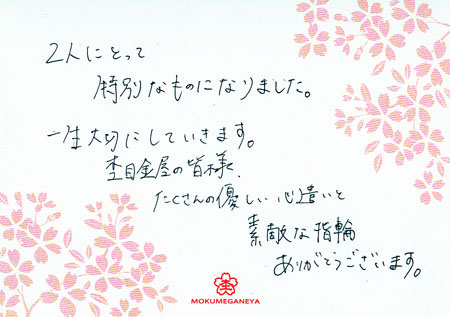 2人にとって
特別なものになりました。
一生大切にしていきます。
杢目金屋の皆様、
たくさんの優しい心遣いと
素敵な指輪
ありがとうございます。
杢
MOKUMEGANEYA